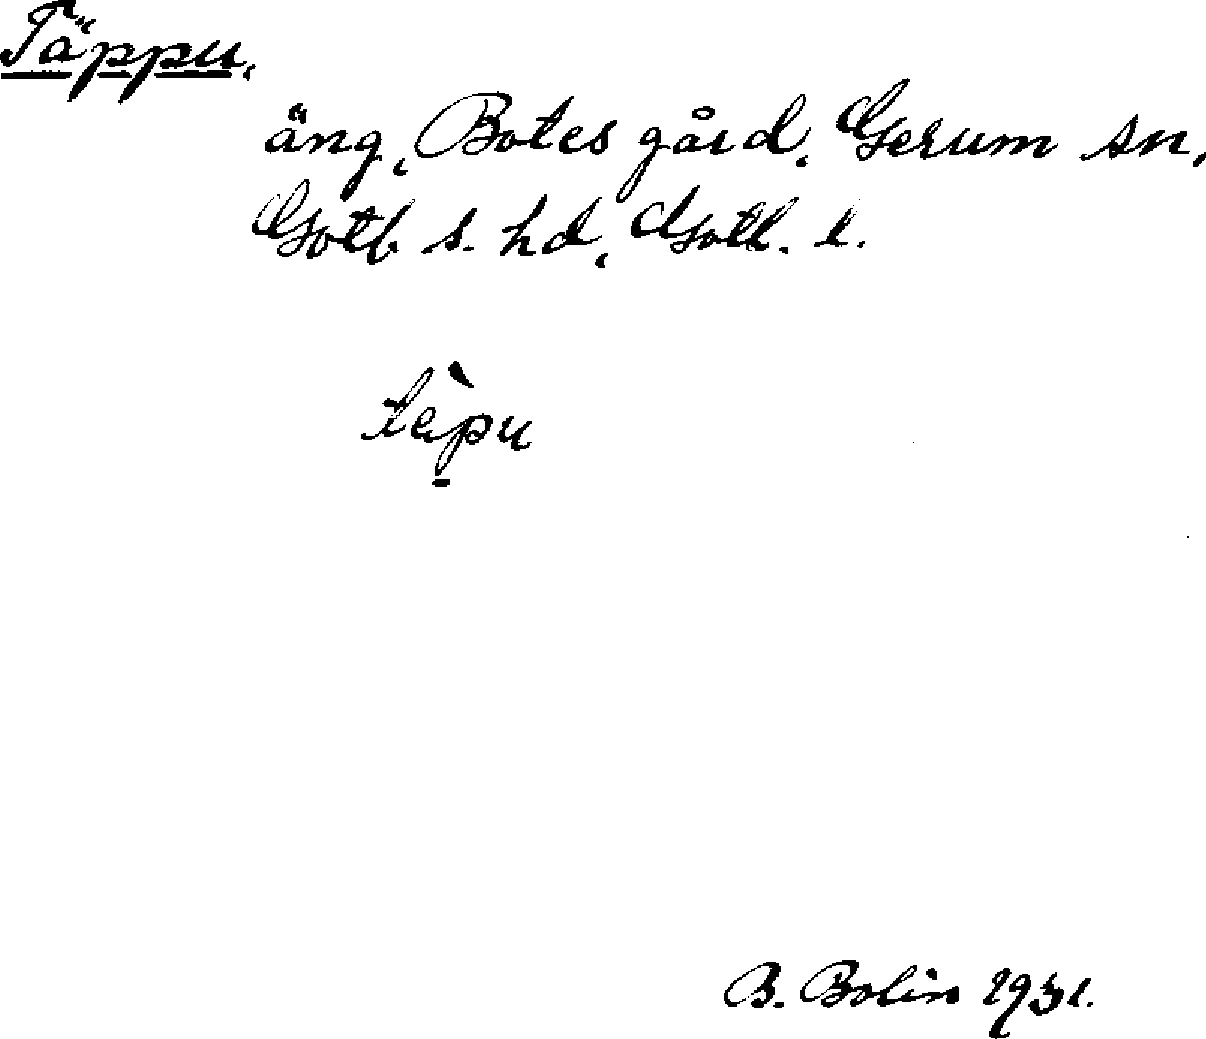 Täppu,
äng, Botes gård, Gerum sn,
Gotl. s. hd, Gotl. l.
tàpu
B. Bolin 1931.